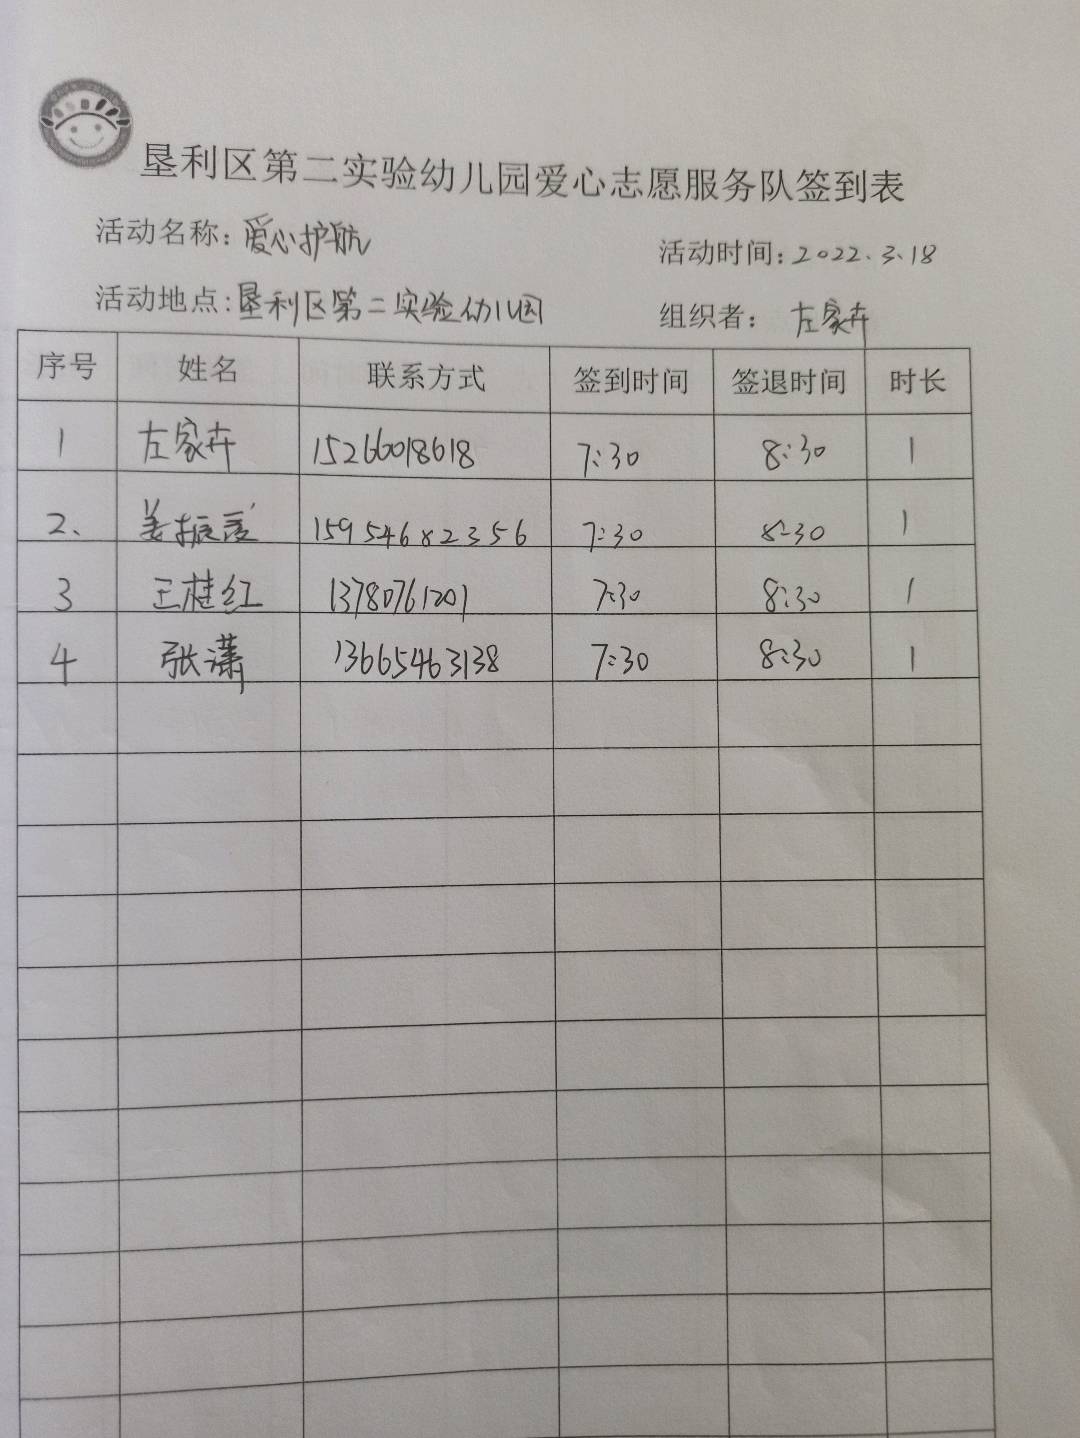 垦利区第二实验幼儿园爱心志愿服务队签到表
活动名称：爱心护航 活动时间：2022.3.18
活动地点：垦利区第二实验幼儿园 组织者：左家卉
序号 姓名 联系方式 签到时间 签退时间 时长
1 左家卉 15266018618 7:30 8:30 1
2、 姜振 15954682356 7:30 8:30 1
3 王桂红 13780761201 7:30 8:30 1
4 张潇 13665463138 7:30 8:30 1